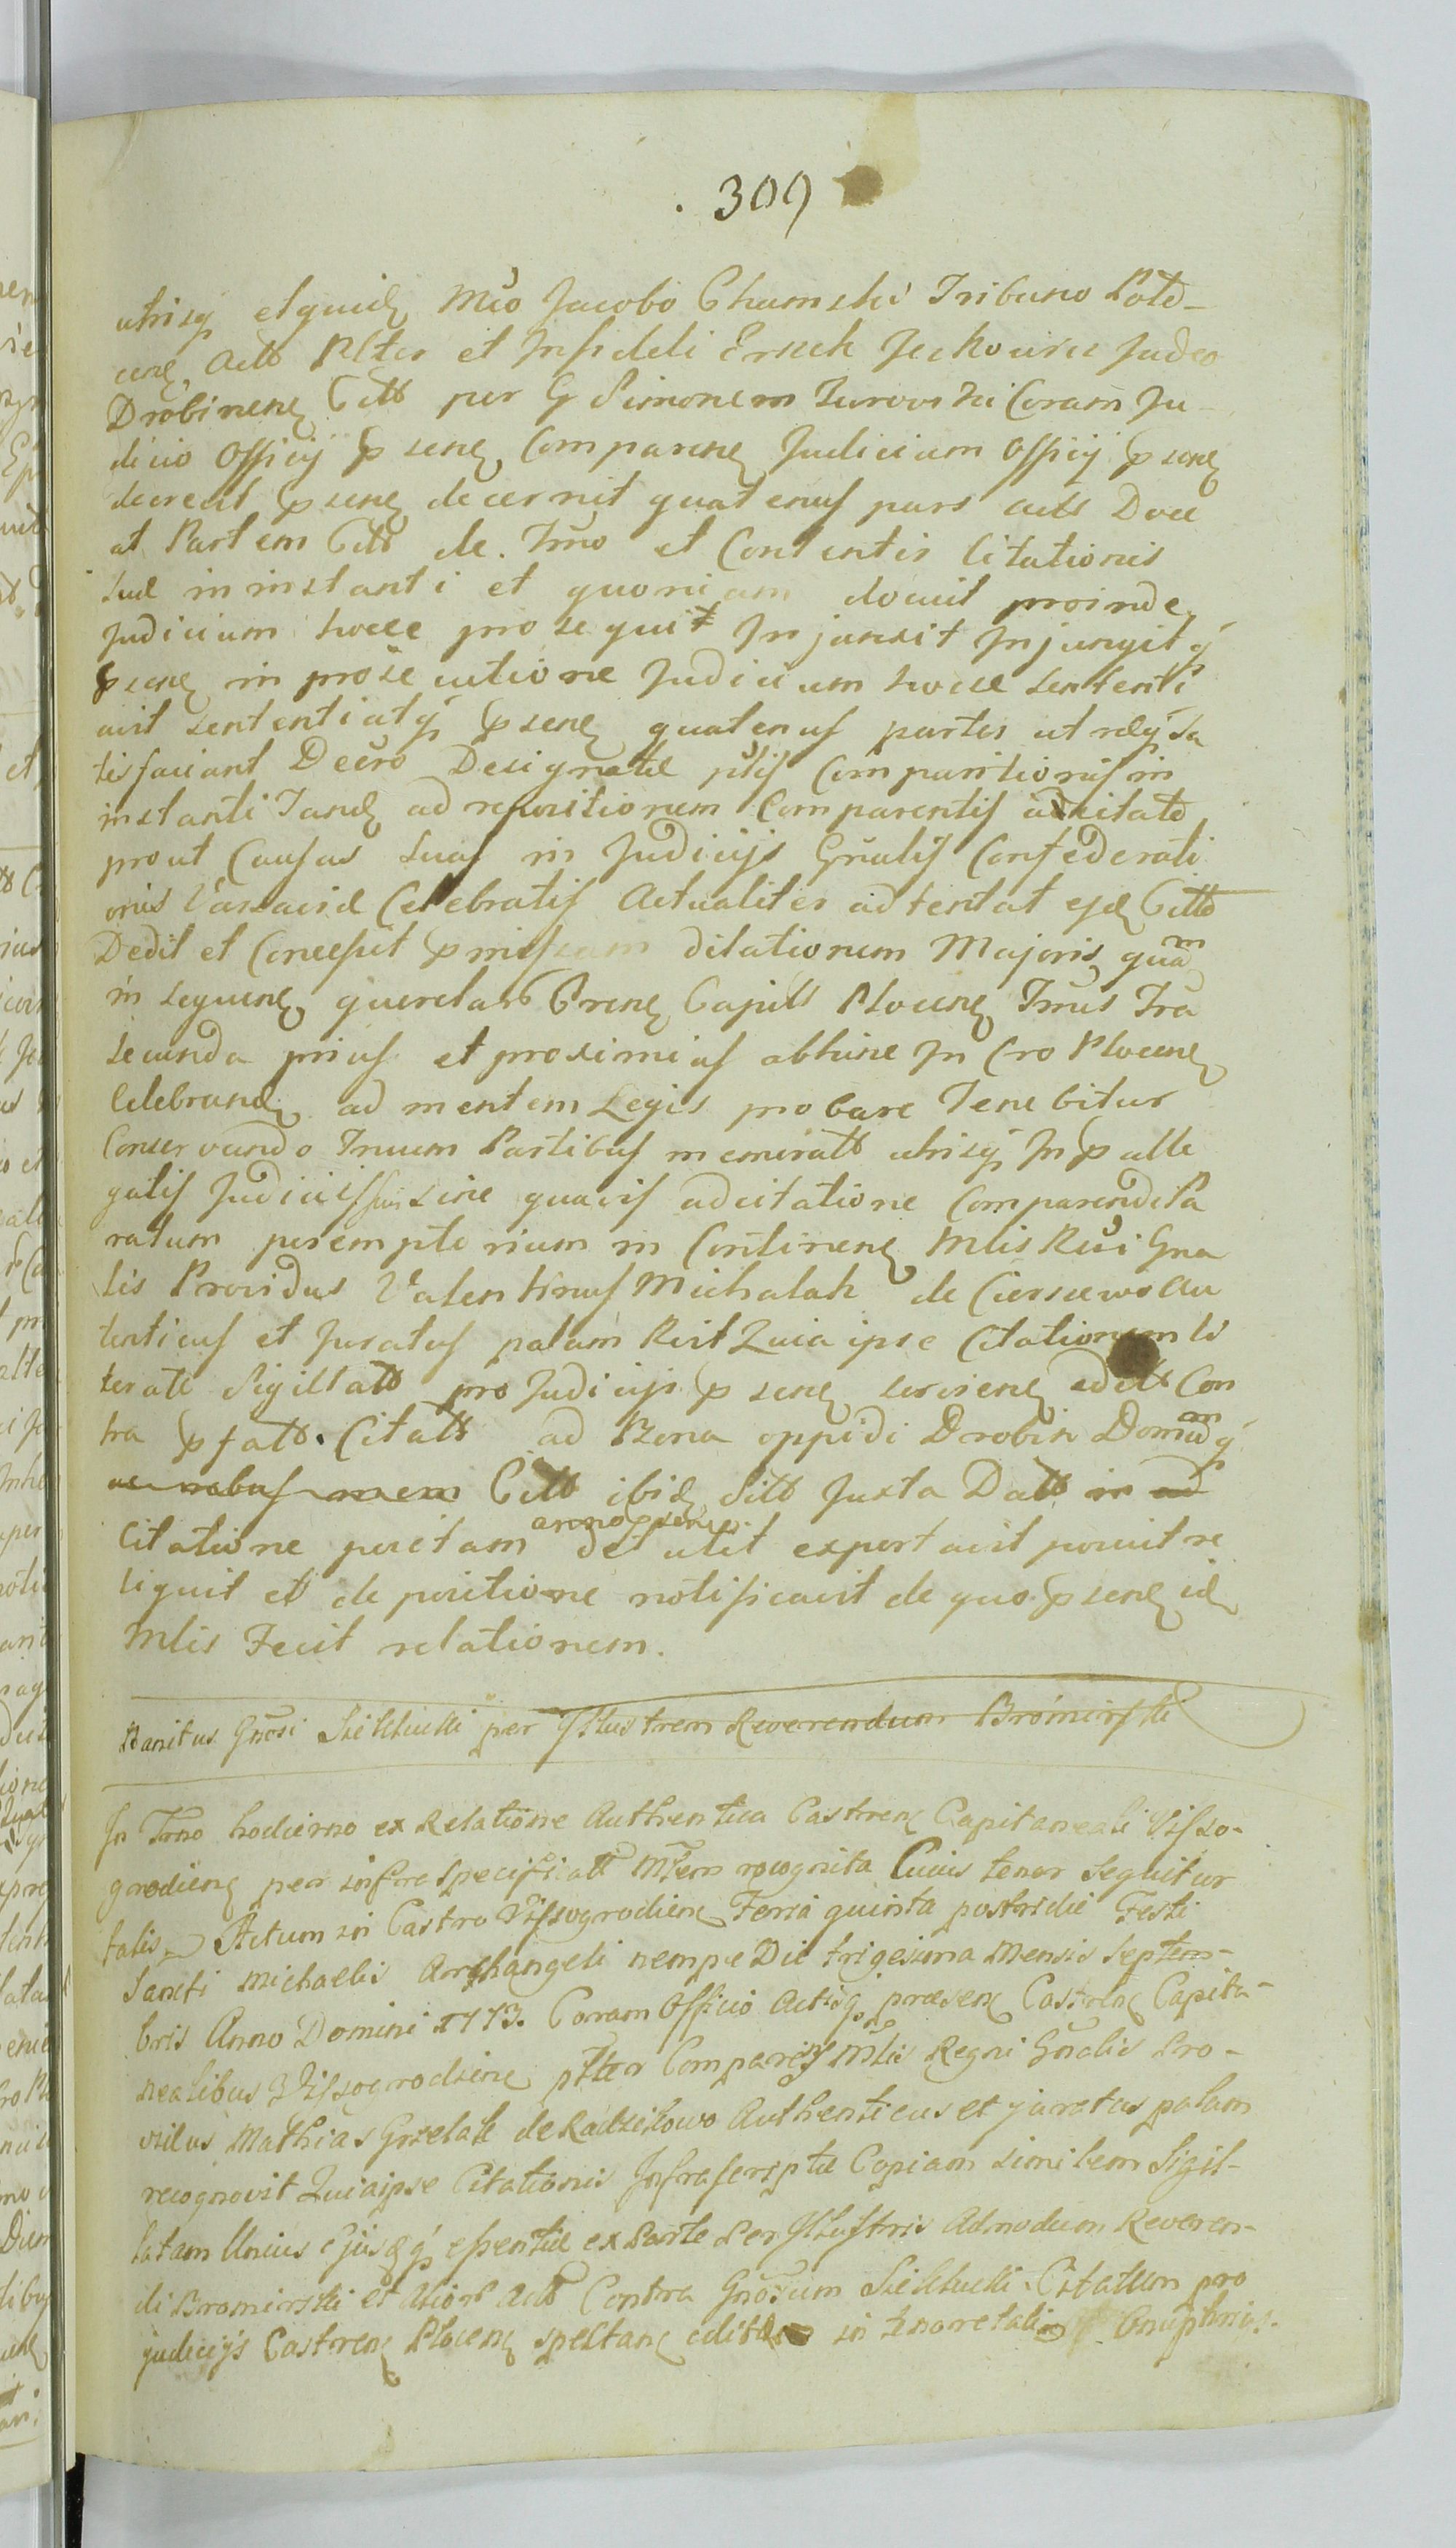 309
utrisq etquid Mco Jacobo Chamski Tribuno Loto-
cen Actt Plter et Infideli Erszek Jeckowicz Judeo
Drobinen Citt per G Simonem Turowski Coram Ju-
dicio Officij psen Comparen Judicium Officij psen
decrevit psen decernit quatenus pars actt Doce
at Partem Citt de Tmo et Contentis Citationis
suae in instanti et quoniam docuit proinde
Judicium hocce prosequi Injunxit Injungitq
psen in prosecutione Judicium hocce Sententi
avit sententiatq psen quatenus partes utraeq Sa
tisfaciant Decro Designatae ptis Comparitionis in
instanti Tand ad repositionem Comparentis adcitato
prout Causas suas in Judicijs Gnalis Confederati
onis Varsaviae Celebratis Actualiter adtentat ejd Citto
Dedit et Concessit pmissam dilationem Majoris quam
in sequen querelar Gren Capitt Plocen Tmis Tra
Secunda prius et proximius abhinc In Cro Plocen
Celebrand ad mentem Legis probare Tenebitur
Conservando Tmum Partibus memoratt utrisq In palle
gatis Judicijs suis sine quavis adcitatione Comparendi Pa
ratum peremptorium in Continen Mlis Rni Gna
lis Providus Valentinus Michalak de Cierszewo Au
tenticus et Juratus palam Rvit Quia ipse Citationem li
terate Sigillatt pro Judicijs psen servien editt Con
tra pfatt. Citatt ad Bona oppidi Drobin Domumq
Citt ibid Sitt Juxta Datt in ad
Citatione positam anno psenti detulit exportavit posuit re
liquit et de positione notificavit de quo psen id
Mlis Fecit relationem.
Banitus Gnosi Siekłucki per Jllustrem Reverendum Bromirski
In Tmo hodierno ex Relatione Authentica Castren Capitaneali Visso-
grodien per infraspecificatt Mlem recognita Cuius tenor Sequitur
talis. Actum in Castro Vissogrodien Feria quinta postridie Festi
Sancti Michaelis Archangeli nempe Die trigesima Mensis Septem-
bris Anno Domini 1773. Coram Officio Actisq praesen Castren Capita-
nealibus Vissogrodien plter Comparens Mlis Regni Gnalis Pro-
vidus Mathias Grzelak de Radzikowo Authenticus et juratus palam
recognovit Quia ipse Citationis Infrascriptae Copiam similem Sigil-
latam Unius Ejusdq essentiae ex Parte Per Jllustris Admodum Reveren-
di Bromirski et Alior Actt Contra Gnosum Siekłucki Citatum pro
judicijs Castren Plocen spectan edit in tenore tali Onuphrius.